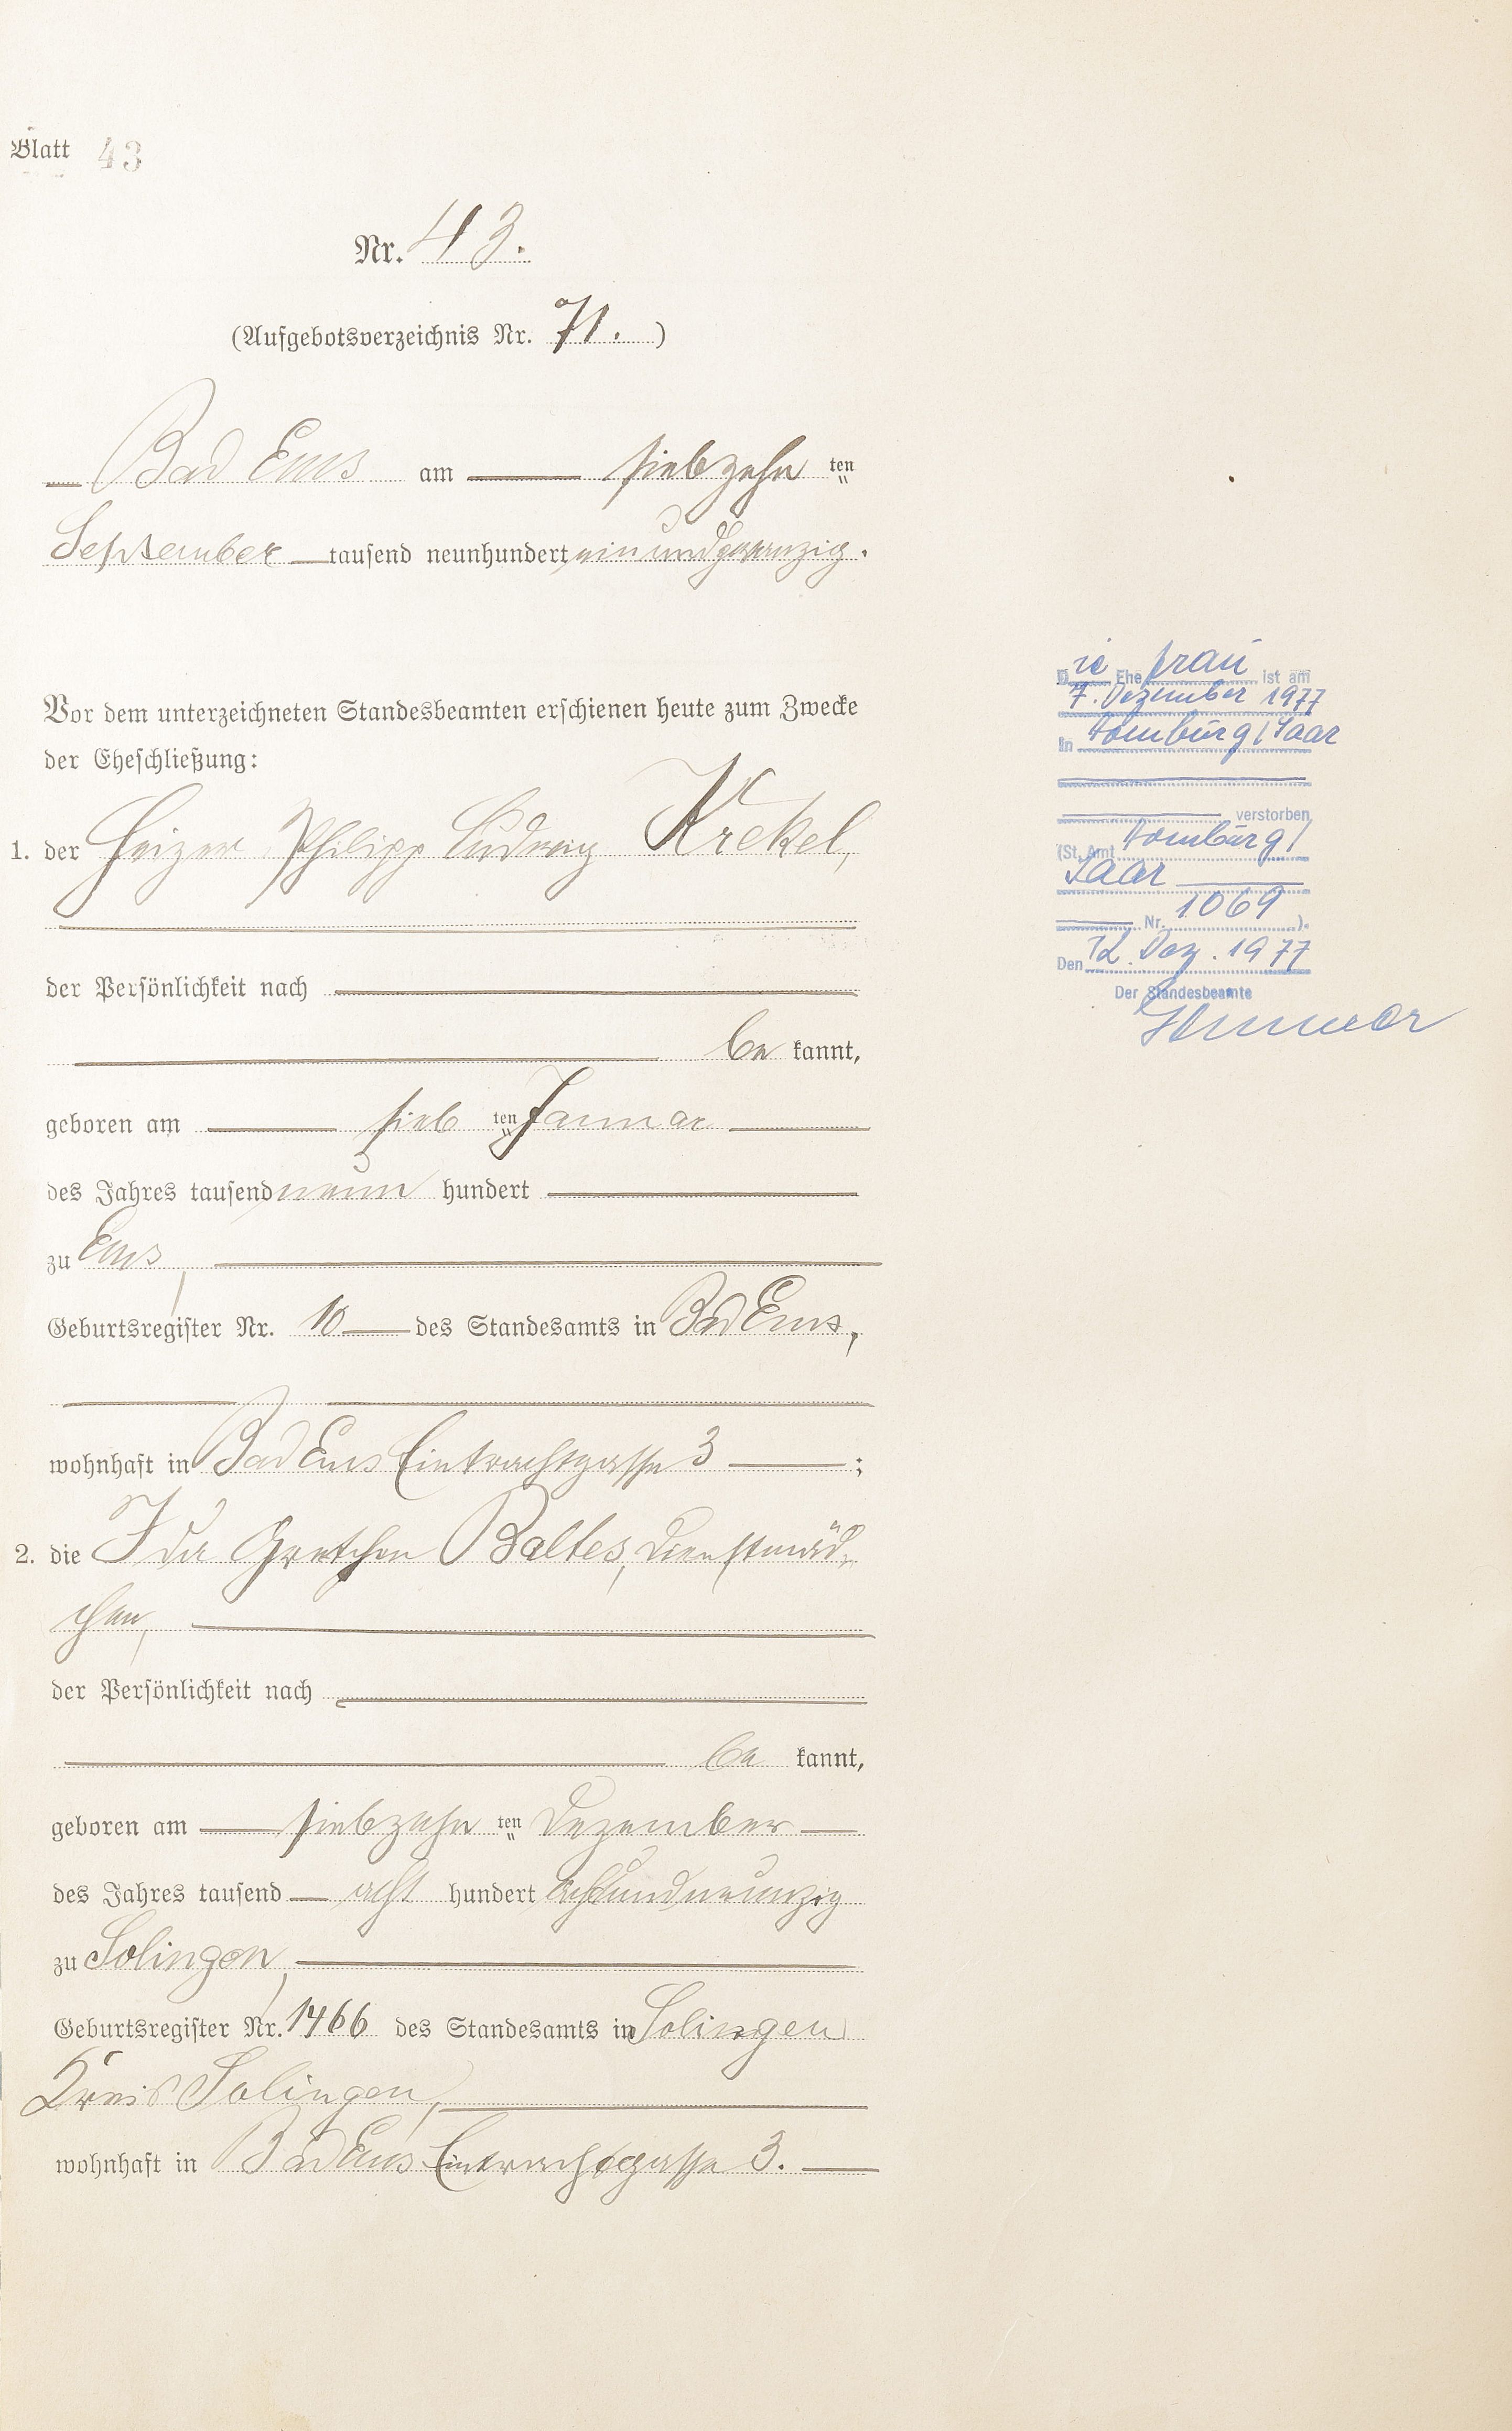 Blatt 43
Nr. 43.
(Aufgebotsverzeichnis Nr. 71.)
Bad Ems am siebzehn ten
September tausend neunhundert einundzwanzig.
Vor dem unterzeichneten Standesbeamten erschienen heute zum Zwecke
der Eheschließung:
1. der Heizer Philipp Ludwig Krekel,
der Persönlichkeit nach
be kannt,
geboren am sieb ten Januar
des Jahres tausend neun hundert
zu Ems,
Geburtsregister Nr. 10 des Standesamts in Bad Ems,
wohnhaft in Bad Ems Eintrachtgasse 3 ;
2. die Ida Gretchen Baltes, Dienstmäd-
chen,
der Persönlichkeit nach
be kannt,
geboren am siebzehn ten Dezember
des Jahres tausend acht hundert achtundneunzig
zu Solingen,
Geburtsregister Nr. 1466 des Standesamts in Solingen
Kreis Solingen,
wohnhaft in Bad Ems Eintrachtgasse 3.
Die Ehefrau ist am
7. Dezember 1977
in Homburg/Saar
verstorben
(St. Amt Homburg/
Saar
Nr. 1069 ).
Den 12. Dez. 1977
Der Standesbeamte